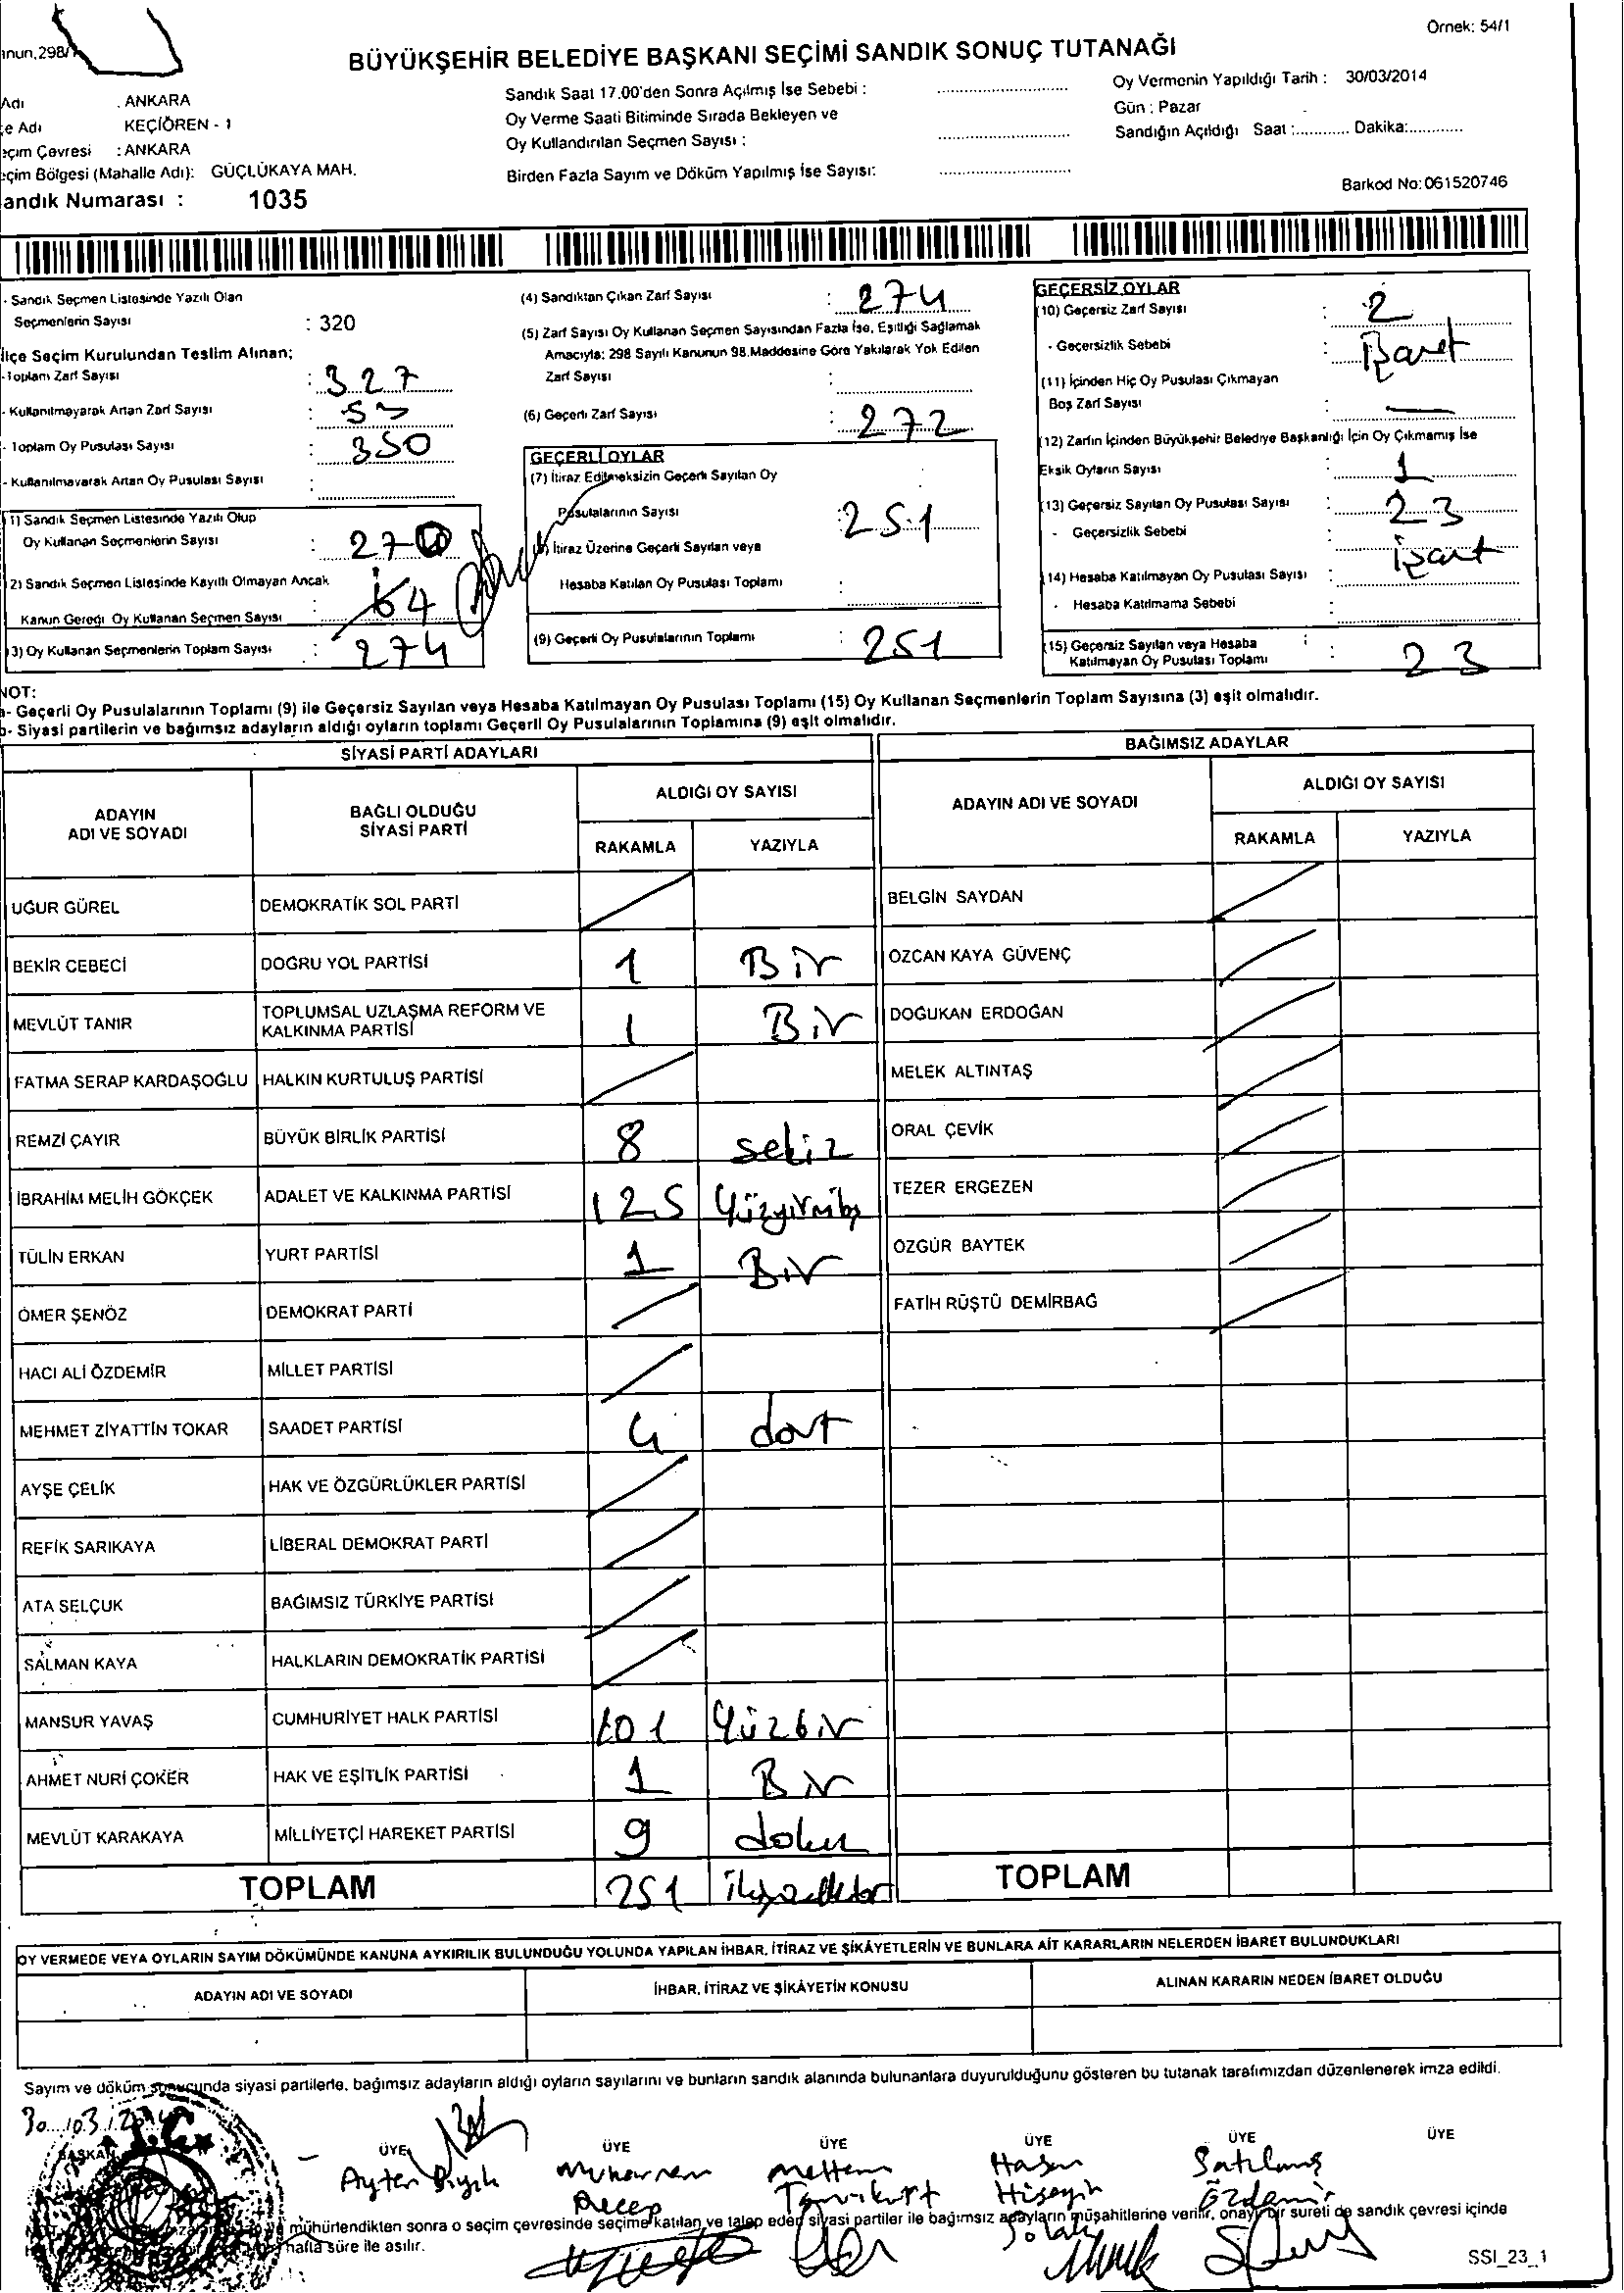 Örnek: 54/1
BÜYÜKŞEHİR BELEDİYE BAŞKANI SEÇİMİ SANDIK SONUÇ TUTANAĞI
anun,298/
Adı : ANKARA
çe Adı KEÇİÖREN - 1
eçim Çevresi : ANKARA
eçim Bölgesi (Mahalle Adı): GÜÇLÜKAYA MAH.
andık Numarası : 1035
Sandık Saat 17.00'den Sonra Açılmış İse Sebebi :
Oy Verme Saati Bitiminde Sırada Bekleyen ve
Oy Kullandırılan Seçmen Sayısı :
Birden Fazla Sayım ve Döküm Yapılmış İse Sayısı:
Oy Vermenin Yapıldığı Tarih : 30/03/2014
Gün : Pazar
Sandığın Açıldığı Saat :............ Dakika:............
Barkod No:061520746
- Sandık Seçmen Listesinde Yazılı Olan
Seçmenlerin Sayısı : 320
İlçe Seçim Kurulundan Teslim Alınan;
-Toplam Zarf Sayısı : 327
- Kullanılmayarak Artan Zarf Sayısı : 53
- Toplam Oy Pusulası Sayısı : 350
- Kullanılmayarak Artan Oy Pusulası Sayısı :
1) Sandık Seçmen Listesinde Yazılı Olup
Oy Kullanan Seçmenlerin Sayısı : 270
2) Sandık Seçmen Listesinde Kayıtlı Olmayan Ancak
Kanun Gereği Oy Kullanan Seçmen Sayısı : 4
3) Oy Kullanan Seçmenlerin Toplam Sayısı : 274
(4) Sandıktan Çıkan Zarf Sayısı : 274
(5) Zarf Sayısı Oy Kullanan Seçmen Sayısından Fazla İse, Eşitliği Sağlamak
Amacıyla; 298 Sayılı Kanunun 98.Maddesine Göre Yakılarak Yok Edilen
Zarf Sayısı :
(6) Geçerli Zarf Sayısı : 272
GEÇERLİ OYLAR
(7) İtiraz Edilmeksizin Geçerli Sayılan Oy
Pusulalarının Sayısı : 251
(8) İtiraz Üzerine Geçerli Sayılan veya
Hesaba Katılan Oy Pusulası Toplamı :
(9) Geçerli Oy Pusulalarının Toplamı : 251
GEÇERSİZ OYLAR
(10) Geçersiz Zarf Sayısı : 2
- Geçersizlik Sebebi : İşaret
(11) İçinden Hiç Oy Pusulası Çıkmayan
Boş Zarf Sayısı : —
(12) Zarfın İçinden Büyükşehir Belediye Başkanlığı İçin Oy Çıkmamış İse
Eksik Oyların Sayısı : 1
(13) Geçersiz Sayılan Oy Pusulası Sayısı : 23
- Geçersizlik Sebebi : işart
(14) Hesaba Katılmayan Oy Pusulası Sayısı :
- Hesaba Katılmama Sebebi :
(15) Geçersiz Sayılan veya Hesaba
Katılmayan Oy Pusulası Toplamı : 23
NOT:
a- Geçerli Oy Pusulalarının Toplamı (9) ile Geçersiz Sayılan veya Hesaba Katılmayan Oy Pusulası Toplamı (15) Oy Kullanan Seçmenlerin Toplam Sayısına (3) eşit olmalıdır.
b- Siyasi partilerin ve bağımsız adayların aldığı oyların toplamı Geçerli Oy Pusulalarının Toplamına (9) eşit olmalıdır.
SİYASİ PARTİ ADAYLARI
ADAYIN ADI VE SOYADI BAĞLI OLDUĞU SİYASİ PARTİ ALDIĞI OY SAYISI
RAKAMLA YAZIYLA
UĞUR GÜREL DEMOKRATİK SOL PARTİ
BEKİR CEBECİ DOĞRU YOL PARTİSİ 1 Bir
MEVLÜT TANIR TOPLUMSAL UZLAŞMA REFORM VE KALKINMA PARTİSİ 1 Bir
FATMA SERAP KARDAŞOĞLU HALKIN KURTULUŞ PARTİSİ
REMZİ ÇAYIR BÜYÜK BİRLİK PARTİSİ 8 sekiz
İBRAHİM MELİH GÖKÇEK ADALET VE KALKINMA PARTİSİ 125 Yüzyirmibş
TÜLİN ERKAN YURT PARTİSİ 1 Bir
ÖMER ŞENÖZ DEMOKRAT PARTİ
HACI ALİ ÖZDEMİR MİLLET PARTİSİ
MEHMET ZİYATTİN TOKAR SAADET PARTİSİ 4 dört
AYŞE ÇELİK HAK VE ÖZGÜRLÜKLER PARTİSİ
REFİK SARIKAYA LİBERAL DEMOKRAT PARTİ
ATA SELÇUK BAĞIMSIZ TÜRKİYE PARTİSİ
SALMAN KAYA HALKLARIN DEMOKRATİK PARTİSİ
MANSUR YAVAŞ CUMHURİYET HALK PARTİSİ 101 Yüzbir
AHMET NURİ ÇOKER HAK VE EŞİTLİK PARTİSİ 1 Bir
MEVLÜT KARAKAYA MİLLİYETÇİ HAREKET PARTİSİ 9 dokuz
TOPLAM 251
BAĞIMSIZ ADAYLAR
ADAYIN ADI VE SOYADI ALDIĞI OY SAYISI
RAKAMLA YAZIYLA
BELGİN SAYDAN
ÖZCAN KAYA GÜVENÇ
DOĞUKAN ERDOĞAN
MELEK ALTINTAŞ
ORAL ÇEVİK
TEZER ERGEZEN
ÖZGÜR BAYTEK
FATİH RÜŞTÜ DEMİRBAĞ
TOPLAM
OY VERMEDE VEYA OYLARIN SAYIM DÖKÜMÜNDE KANUNA AYKIRILIK BULUNDUĞU YOLUNDA YAPILAN İHBAR, İTİRAZ VE ŞİKÂYETLERİN VE BUNLARA AİT KARARLARIN NELERDEN İBARET BULUNDUKLARI
ADAYIN ADI VE SOYADI İHBAR, İTİRAZ VE ŞİKÂYETİN KONUSU ALINAN KARARIN NEDEN İBARET OLDUĞU
Sayım ve döküm sonucunda siyasi partilerle, bağımsız adayların aldığı oyların sayılarını ve bunların sandık alanında bulunanlara duyurulduğunu gösteren bu tutanak tarafımızdan düzenlenerek imza edildi.
30/03/2014
T.C.
BAŞKAN ÜYE ÜYE ÜYE ÜYE ÜYE ÜYE
Ayten Bıyık Muharrem Meltem Hasan Satılmış
Recep Hüseyin Özdemir
mühürlendikten sonra o seçim çevresinde seçime katılan ve talep eden siyasi partiler ile bağımsız adayların müşahitlerine verilir, onaylı bir sureti de sandık çevresi içinde
hafta süre ile asılır.
SSI_23_1